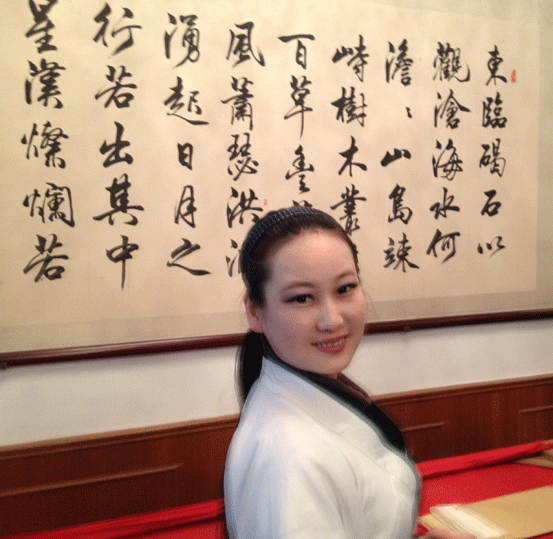 東臨碣石以
觀滄海水何
澹〻山島竦
峙樹木叢
百草豐
風蕭瑟洪波
湧起日月之
行若出其中
星漢燦爛若